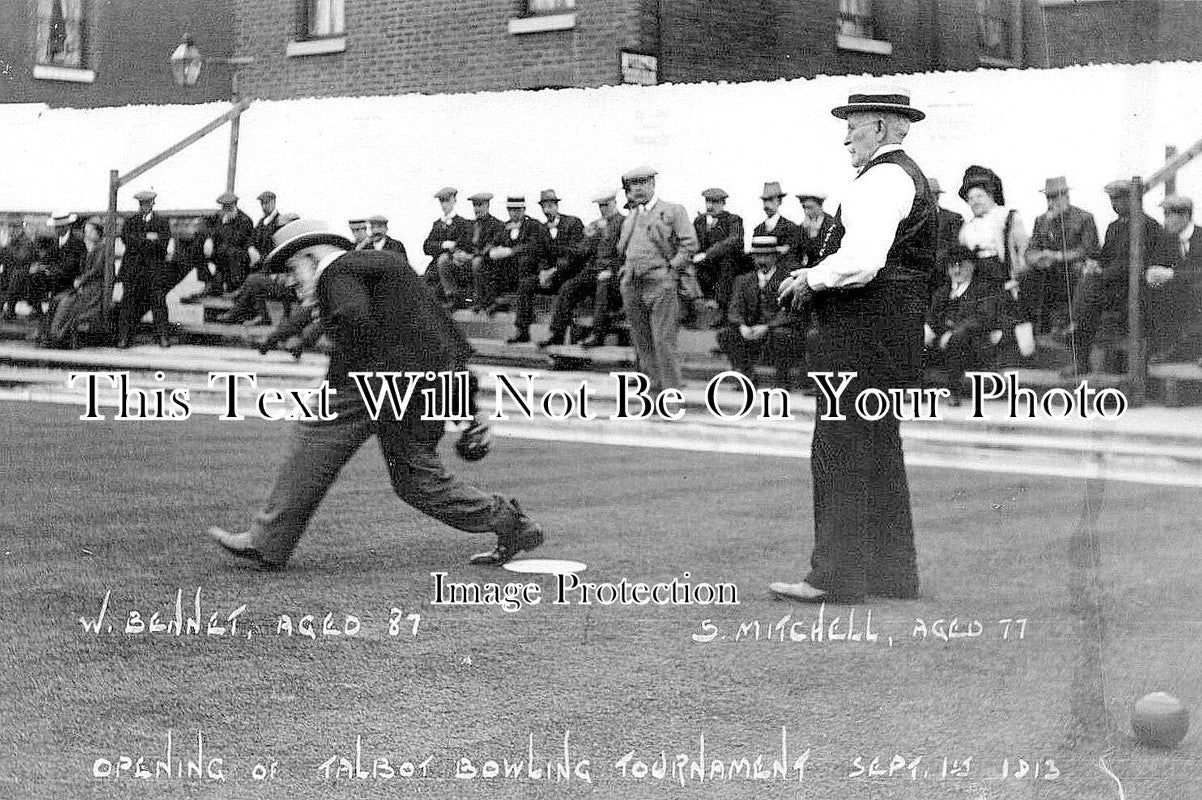 This Text Will Not Be On Your Photo
Image Protection
W. BENNET, AGED 87
S. MITCHELL, AGED 77
OPENING OF TALBOT BOWLING TOURNAMENT SEPT. 1st 1913